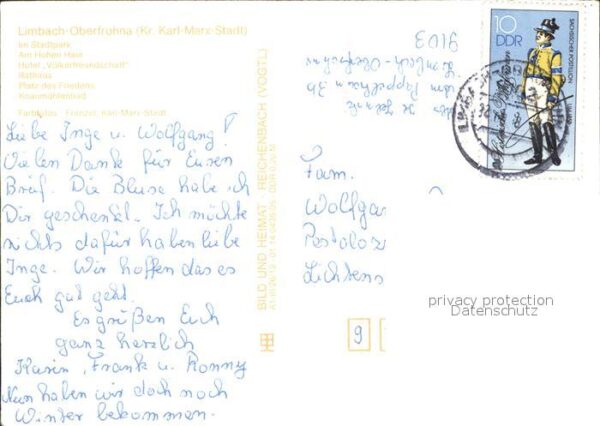 Limbach-Oberfrohna (Kr. Karl-Marx-Stadt)
Im Stadtpark
Am Hohen Hain
Hotel „Völkerfreundschaft“
Rathaus
Platz des Friedens
Knaumühlenbad
Farbfotos: Frenzel, Karl-Marx-Stadt
Liebe Inge u. Wolfgang!
Vielen Dank für Euren
Brief. Die Bluse habe ich
Dir geschenkt. Ich möchte
nichts dafür haben liebe
Inge. Wir hoffen das es
Euch gut geht.
Es grüßen Euch
ganz herzlich
Karin, Frank u. Ronny
Nun haben wir doch noch
Winter bekommen.
BILD UND HEIMAT REICHENBACH (VOGTL)
9103
Limbach-Oberfrohna
10
DDR
SÄCHSISCHER POSTILLION
Fam.
Wolfga
Pestaloz
Lichtens
privacy protection
Datenschutz
9